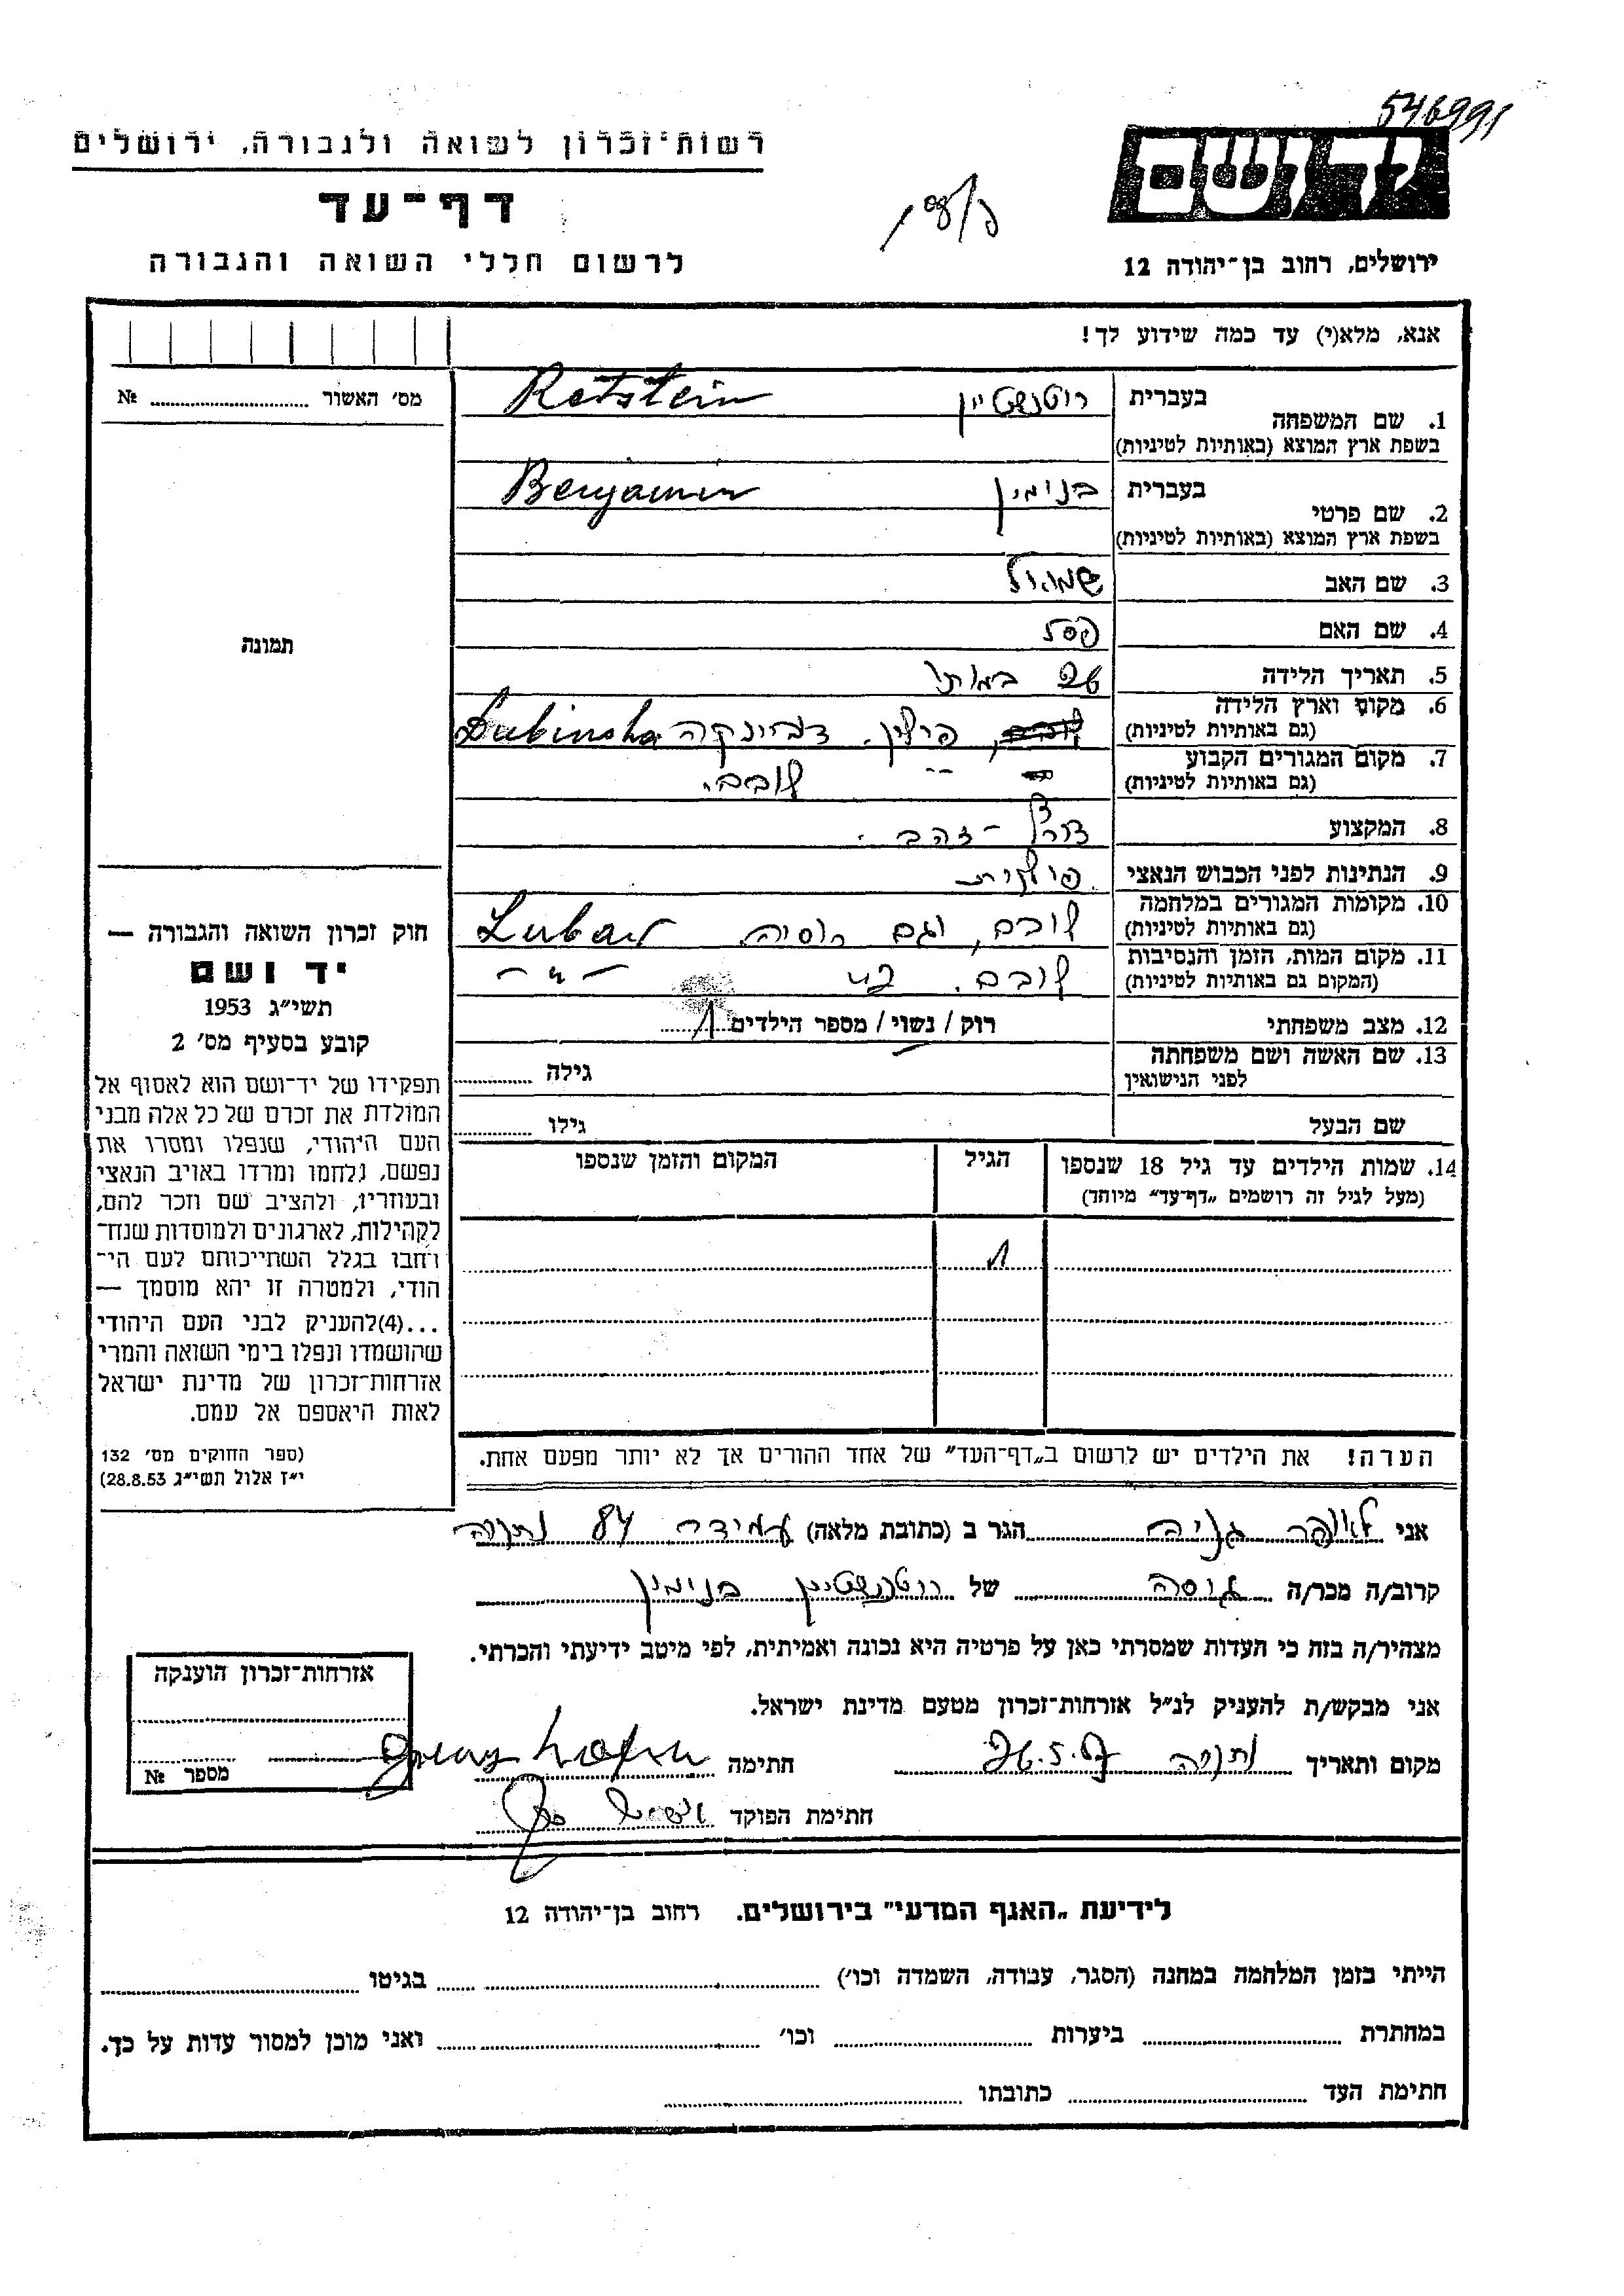 546991
רשות־זכרון לשואה ולגבורה, ירושלים
דף־עד
לרשום חללי השואה והגבורה
ידושם
ירושלים, רחוב בן־יהודה 12
אנא, מלא(י) עד כמה שידוע לך!
מס׳ האשור № 
1. שם המשפחה בעברית רוטנשטיין Rotstein
בשפת ארץ המוצא (באותיות לטיניות)
2. שם פרטי בעברית בנימין Benjamin
בשפת ארץ המוצא (באותיות לטיניות)
3. שם האב שמואל
4. שם האם פסל
תמונה
5. תאריך הלידה 26 במותו
6. מקום וארץ הלידה פולין. דבינקה Dubinska
(גם באותיות לטיניות)
7. מקום המגורים הקבוע לובם.
(גם באותיות לטיניות)
8. המקצוע זהב.
9. הנתינות לפני הכבוש הנאצי פולנית
10. מקומות המגורים במלחמה לובם, וגם רוסיה.
(גם באותיות לטיניות)
11. מקום המות, הזמן והנסיבות לובם.
(המקום גם באותיות לטיניות)
12. מצב משפחתי רוק / נשוי / מספר הילדים 1
13. שם האשה ושם משפחתה לפני הנישואין גילה
שם הבעל גילו
14. שמות הילדים עד גיל 18 שנספו הגיל המקום והזמן שנספו
(מעל לגיל זה רושמים „דף־עד״ מיוחד)
חוק זכרון השואה והגבורה —
יד ושם
תשי״ג 1953
קובע בסעיף מס׳ 2
תפקידו של יד־ושם הוא לאסוף אל
המולדת את זכרם של כל אלה מבני
העם היהודי, שנפלו ומסרו את
נפשם, נלחמו ומרדו באויב הנאצי
ובעוזריו, ולהציב שם וזכר להם,
לקהילות, לארגונים ולמוסדות שנח־
רחבו בגלל השתייכותם לעם הי־
הודי, ולמטרה זו יהא מוסמך —
...(4)להעניק לבני העם היהודי
שהושמדו ונפלו בימי השואה והמרי
אזרחות־זכרון של מדינת ישראל
לאות היאספם אל עמם.
(ספר החוקים מס׳ 132
י״ז אלול תשי״ג 28.8.53)
הערה! את הילדים יש לרשום ב„דף־העד״ של אחד ההורים אך לא יותר מפעם אחת.
אני לאופר גניה הגר ב (כתובת מלאה) עמידר 84 נתניה
קרוב/ה מכר/ה גיסה של רוטנשטיין בנימין
מצהיר/ה בזה כי העדות שמסרתי כאן על פרטיה היא נכונה ואמיתית, לפי מיטב ידיעתי והכרתי.
אני מבקש/ת להעניק לנ״ל אזרחות־זכרון מטעם מדינת ישראל.
אזרחות־זכרון הוענקה
מספר №
מקום ותאריך נתניה 26.5.57 חתימה
חתימת הפוקד
לידיעת „האגף המדעי״ בירושלים. רחוב בן־יהודה 12
הייתי בזמן המלחמה במחנה (הסגר, עבודה, השמדה וכו׳) בגיטו
במחתרת ביערות וכו׳ ואני מוכן למסור עדות על כך.
חתימת העד כתובתו